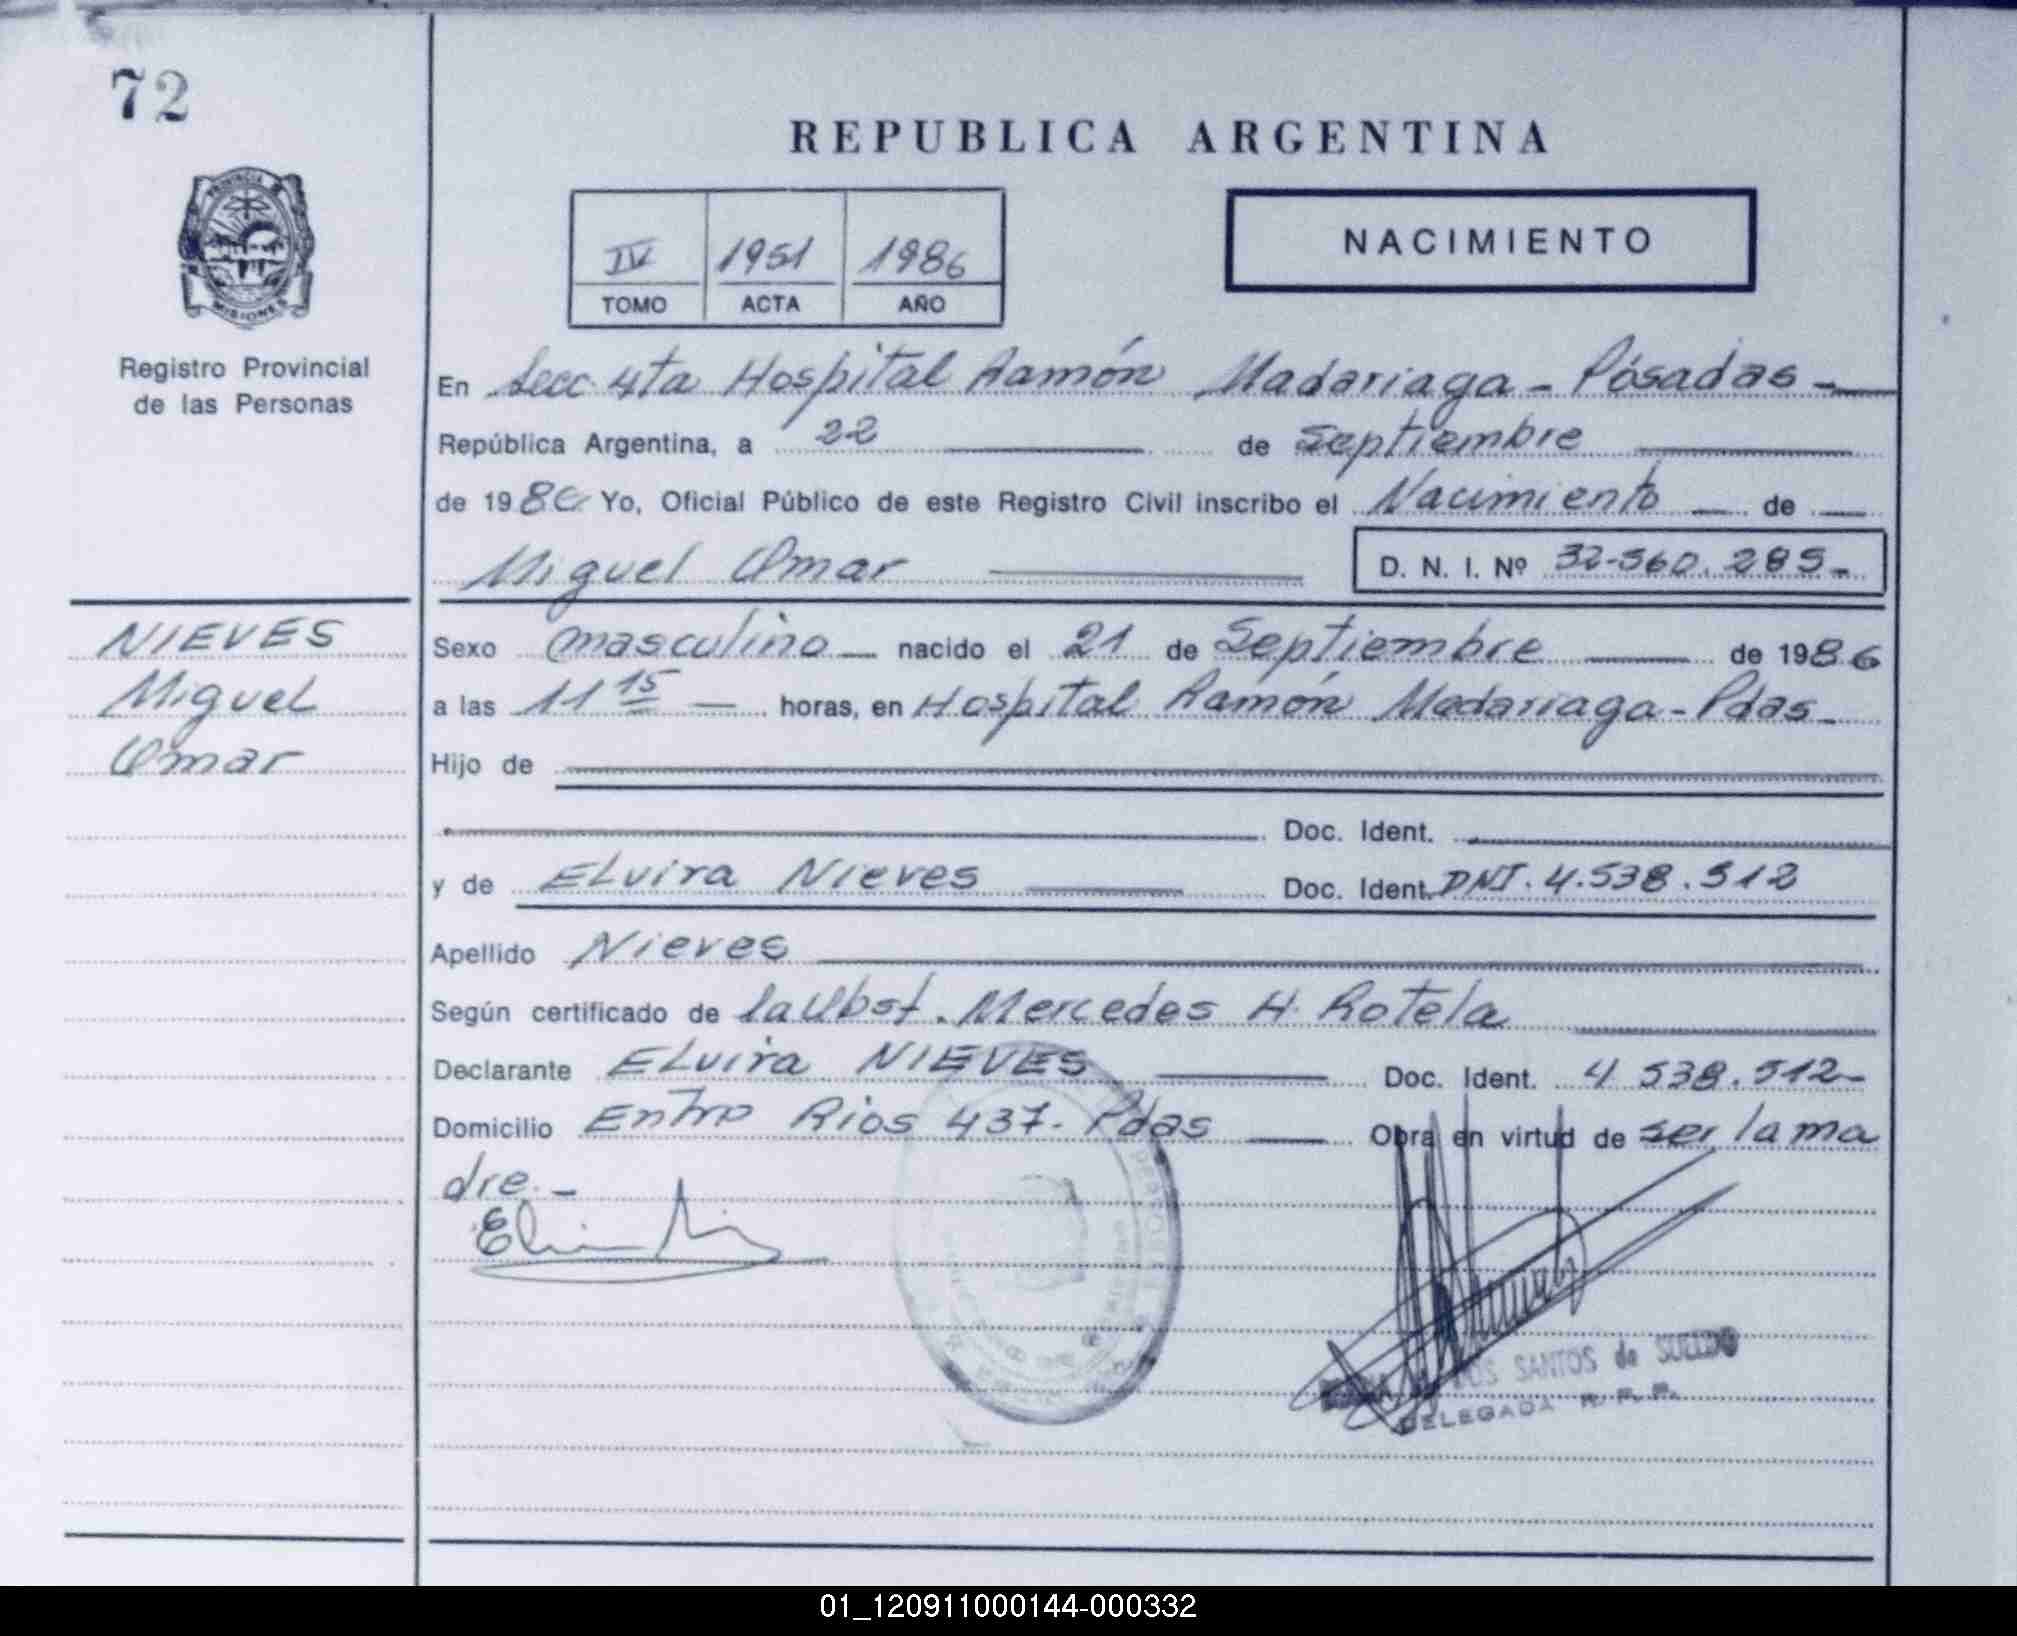 72
REPUBLICA ARGENTINA
PROVINCIA DE
MISIONES
Registro Provincial
de las Personas
IV 1951 1986
TOMO ACTA AÑO
NACIMIENTO
En Secc 4ta Hospital Ramón Madariaga - Pósadas -
República Argentina, a 22 de Septiembre
de 1986 Yo, Oficial Público de este Registro Civil inscribo el Nacimiento de
Miguel Omar D. N. I. Nº 32-560.285-
NIEVES
Miguel
Omar
Sexo masculino nacido el 21 de Septiembre de 1986
a las 11 15 horas, en Hospital Ramón Madariaga - Pdas -
Hijo de
Doc. Ident.
y de Elvira Nieves Doc. Ident. DNI. 4.538.512
Apellido Nieves
Según certificado de la Obst. Mercedes H. Rotela
Declarante Elvira NIEVES Doc. Ident. 4 538.512-
Domicilio Entre Rios 437- Pdas Obra en virtud de ser la ma
dre. -
SANTOS de SUELDO
DELEGADA R. P. P.
01_120911000144-000332